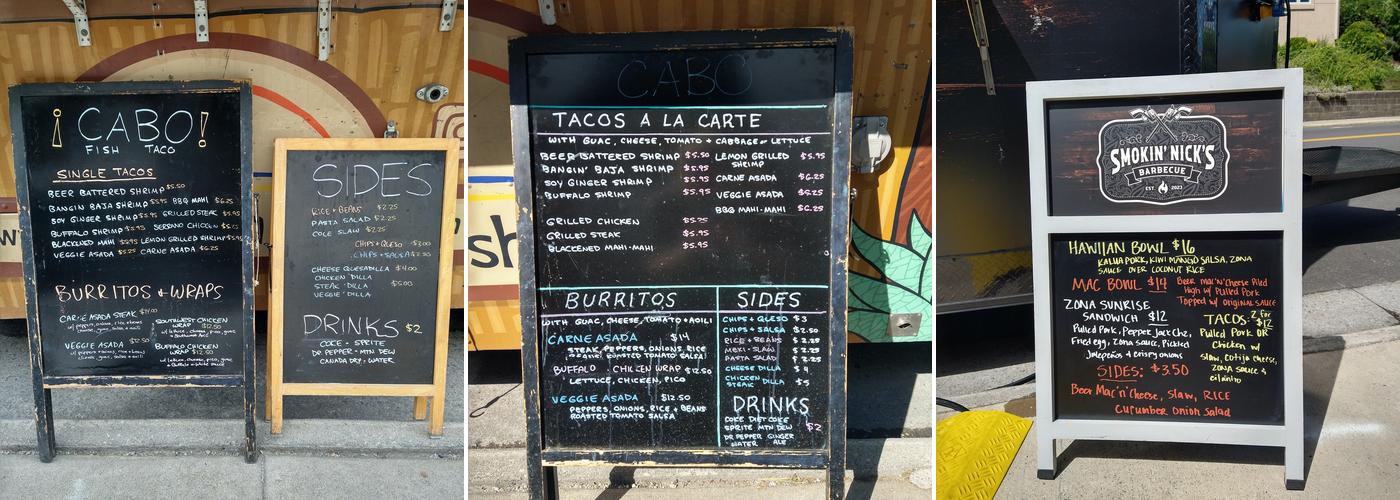 ¡CABO!
FISH TACO
SINGLE TACOS
BEER BATTERED SHRIMP $5.50
BANGIN BAJA SHRIMP $5.95 BBQ MAHI $6.25
SOY GINGER SHRIMP $5.95 GRILLED STEAK $5.95
BUFFALO SHRIMP $5.95 SERRANO CHICKEN $5.75
BLACKENED MAHI $5.95 LEMON GRILLED SHRIMP $5.95
VEGGIE ASADA $5.25 CARNE ASADA $6.25
BURRITOS & WRAPS
CARNE ASADA STEAK $14.00
w/ peppers, onions, rice + beans
VEGGIE ASADA $12.50
SOUTHWEST CHICKEN
WRAP $12.50
BUFFALO CHICKEN
WRAP $12.50
SIDES
RICE + BEANS $2.25
PASTA SALAD $2.25
COLE SLAW $2.25
CHIPS + QUESO $3.00
CHIPS + SALSA $2.50
CHEESE QUESADILLA $4.00
CHICKEN 'DILLA
STEAK 'DILLA $5.00
VEGGIE 'DILLA
DRINKS $2
COKE - SPRITE
DR. PEPPER - MTN DEW
CANADA DRY - WATER
CABO
TACOS A LA CARTE
WITH GUAC, CHEESE, TOMATO + CABBAGE or LETTUCE
BEER BATTERED SHRIMP $5.50
BANGIN' BAJA SHRIMP $5.95
SOY GINGER SHRIMP $5.95
BUFFALO SHRIMP $5.95
GRILLED CHICKEN $5.75
GRILLED STEAK $5.95
BLACKENED MAHI-MAHI $5.95
LEMON GRILLED $5.95
SHRIMP
CARNE ASADA $6.25
VEGGIE ASADA $5.25
BBQ MAHI-MAHI $6.25
BURRITOS
WITH GUAC, CHEESE, TOMATO + AOILI
CARNE ASADA $14
STEAK, PEPPERS, ONIONS, RICE
ROASTED TOMATO SALSA
BUFFALO CHICKEN WRAP $12.50
LETTUCE, CHICKEN, PICO
VEGGIE ASADA $12.50
PEPPERS, ONIONS, RICE + BEANS
ROASTED TOMATO SALSA
SIDES
CHIPS + QUESO $3
CHIPS + SALSA $2.50
RICE + BEANS $2.25
MEXI-SLAW $2.25
PASTA SALAD $2.25
CHEESE DILLA $4
CHICKEN DILLA $5
STEAK
DRINKS
COKE DIET COKE
SPRITE MTN DEW $2
DR PEPPER GINGER
WATER ALE
SMOKIN' NICK'S
BARBECUE
EST. 2023
HAWIIAN BOWL $16
KALUA PORK, KIWI MANGO SALSA, ZONA
SAUCE OVER COCONUT RICE
MAC BOWL $14 Beer Mac'n'Cheese Piled
High w/ Pulled Pork
Topped w/ ORIGINAL SAUCE
ZONA SUNRISE
SANDWICH $12
Pulled Pork, Pepper Jack Chz,
Fried egg, Zona sauce, Pickled
Jalepeños & crispy onions
TACOS: 2 for $12
Pulled Pork OR
Chicken w/
Slaw, Cotija cheese,
ZONA sauce &
cilantro
SIDES: $3.50
Beer Mac'n'Cheese, Slaw, RICE
Cucumber Onion Salad